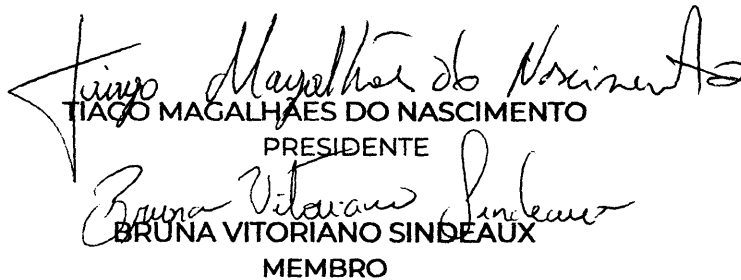 Tiago Magalhães do Nascimento
TIAGO MAGALHÃES DO NASCIMENTO
PRESIDENTE
Bruna Vitoriano Sindeaux
BRUNA VITORIANO SINDEAUX
MEMBRO